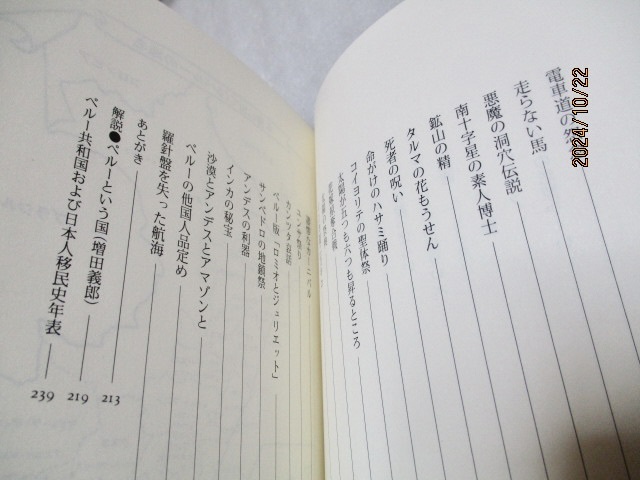 電車道の祭
走らない馬
悪魔の洞穴伝説
南十字星の素人博士
鉱山の精
タルマの花もうせん
死者の呪い
命がけのハサミ踊り
コイヨリテの聖体祭
太陽が五つも六つも昇るところ
ユンサ祭り
カンツタ哀話
ペルー版「ロミオとジュリエット」
サンペドロの地鎮祭
アンデスの利器
インカの秘宝
沙漠とアンデスとアマゾンと
ペルーの他国人品定め
羅針盤を失った航海
あとがき 213
解説●ペルーという国(増田義郎) 219
ペルー共和国および日本人移民史年表 239
2024/10/22